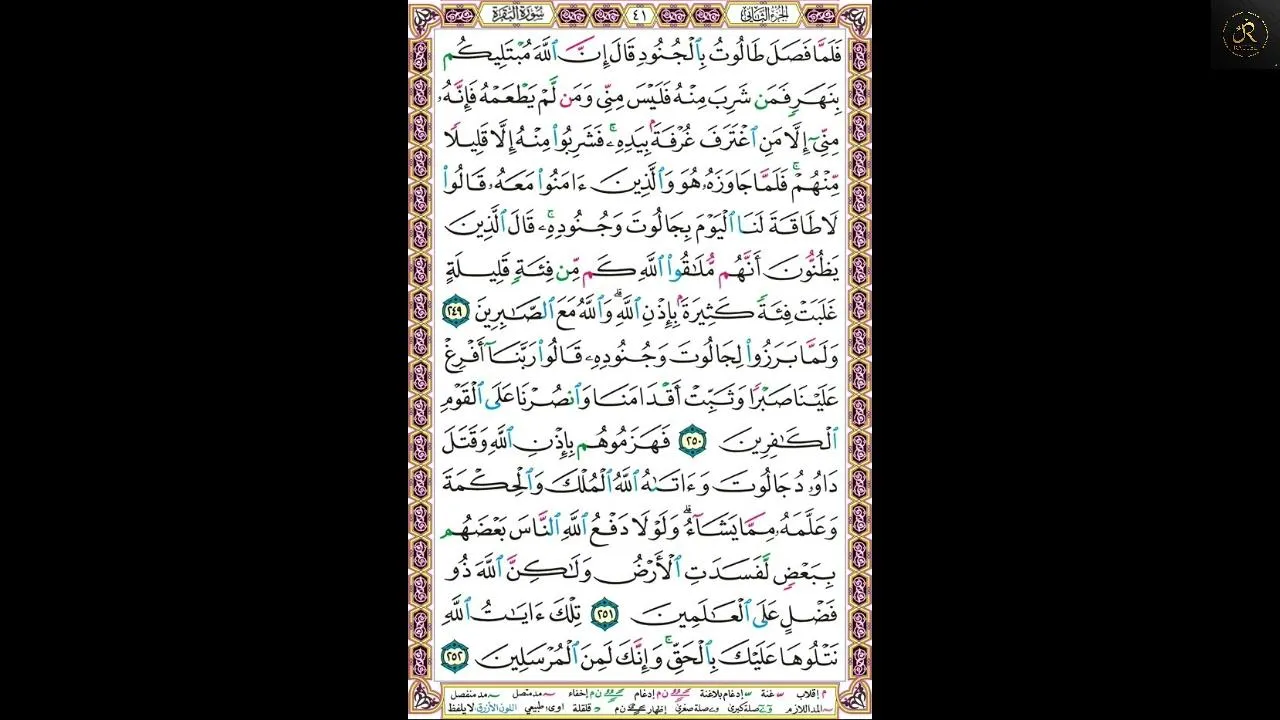 سُورَةُ البَقَرَةِ ٤١ الجزء الثاني
فَلَمَّا فَصَلَ طَالُوتُ بِٱلْجُنُودِ قَالَ إِنَّ ٱللَّهَ مُبْتَلِيكُم
بِنَهَرٍ فَمَن شَرِبَ مِنْهُ فَلَيْسَ مِنِّى وَمَن لَّمْ يَطْعَمْهُ فَإِنَّهُۥ
مِنِّىٓ إِلَّا مَنِ ٱغْتَرَفَ غُرْفَةًۢ بِيَدِهِۦۚ فَشَرِبُوا۟ مِنْهُ إِلَّا قَلِيلًا
مِّنْهُمْۚ فَلَمَّا جَاوَزَهُۥ هُوَ وَٱلَّذِينَ ءَامَنُوا۟ مَعَهُۥ قَالُوا۟
لَا طَاقَةَ لَنَا ٱلْيَوْمَ بِجَالُوتَ وَجُنُودِهِۦۚ قَالَ ٱلَّذِينَ
يَظُنُّونَ أَنَّهُم مُّلَـٰقُوا۟ ٱللَّهِ كَم مِّن فِئَةٍ قَلِيلَةٍ
غَلَبَتْ فِئَةً كَثِيرَةًۢ بِإِذْنِ ٱللَّهِۗ وَٱللَّهُ مَعَ ٱلصَّـٰبِرِينَ ٢٤٩
وَلَمَّا بَرَزُوا۟ لِجَالُوتَ وَجُنُودِهِۦ قَالُوا۟ رَبَّنَآ أَفْرِغْ
عَلَيْنَا صَبْرًا وَثَبِّتْ أَقْدَامَنَا وَٱنصُرْنَا عَلَى ٱلْقَوْمِ
ٱلْكَـٰفِرِينَ ٢٥٠ فَهَزَمُوهُم بِإِذْنِ ٱللَّهِ وَقَتَلَ
دَاوُۥدُ جَالُوتَ وَءَاتَىٰهُ ٱللَّهُ ٱلْمُلْكَ وَٱلْحِكْمَةَ
وَعَلَّمَهُۥ مِمَّا يَشَآءُۗ وَلَوْلَا دَفْعُ ٱللَّهِ ٱلنَّاسَ بَعْضَهُم
بِبَعْضٍ لَّفَسَدَتِ ٱلْأَرْضُ وَلَـٰكِنَّ ٱللَّهَ ذُو
فَضْلٍ عَلَى ٱلْعَـٰلَمِينَ ٢٥١ تِلْكَ ءَايَـٰتُ ٱللَّهِ
نَتْلُوهَا عَلَيْكَ بِٱلْحَقِّۚ وَإِنَّكَ لَمِنَ ٱلْمُرْسَلِينَ ٢٥٢
م إقلاب غنة إدغام بلاغنة ن م إدغام ن م إخفاء مد متصل مد منفصل
المد اللازم صلة كبرى صلة صغرى إظهار ن م قلقلة اوى طبيعي اللون الأزرق لا يلفظ